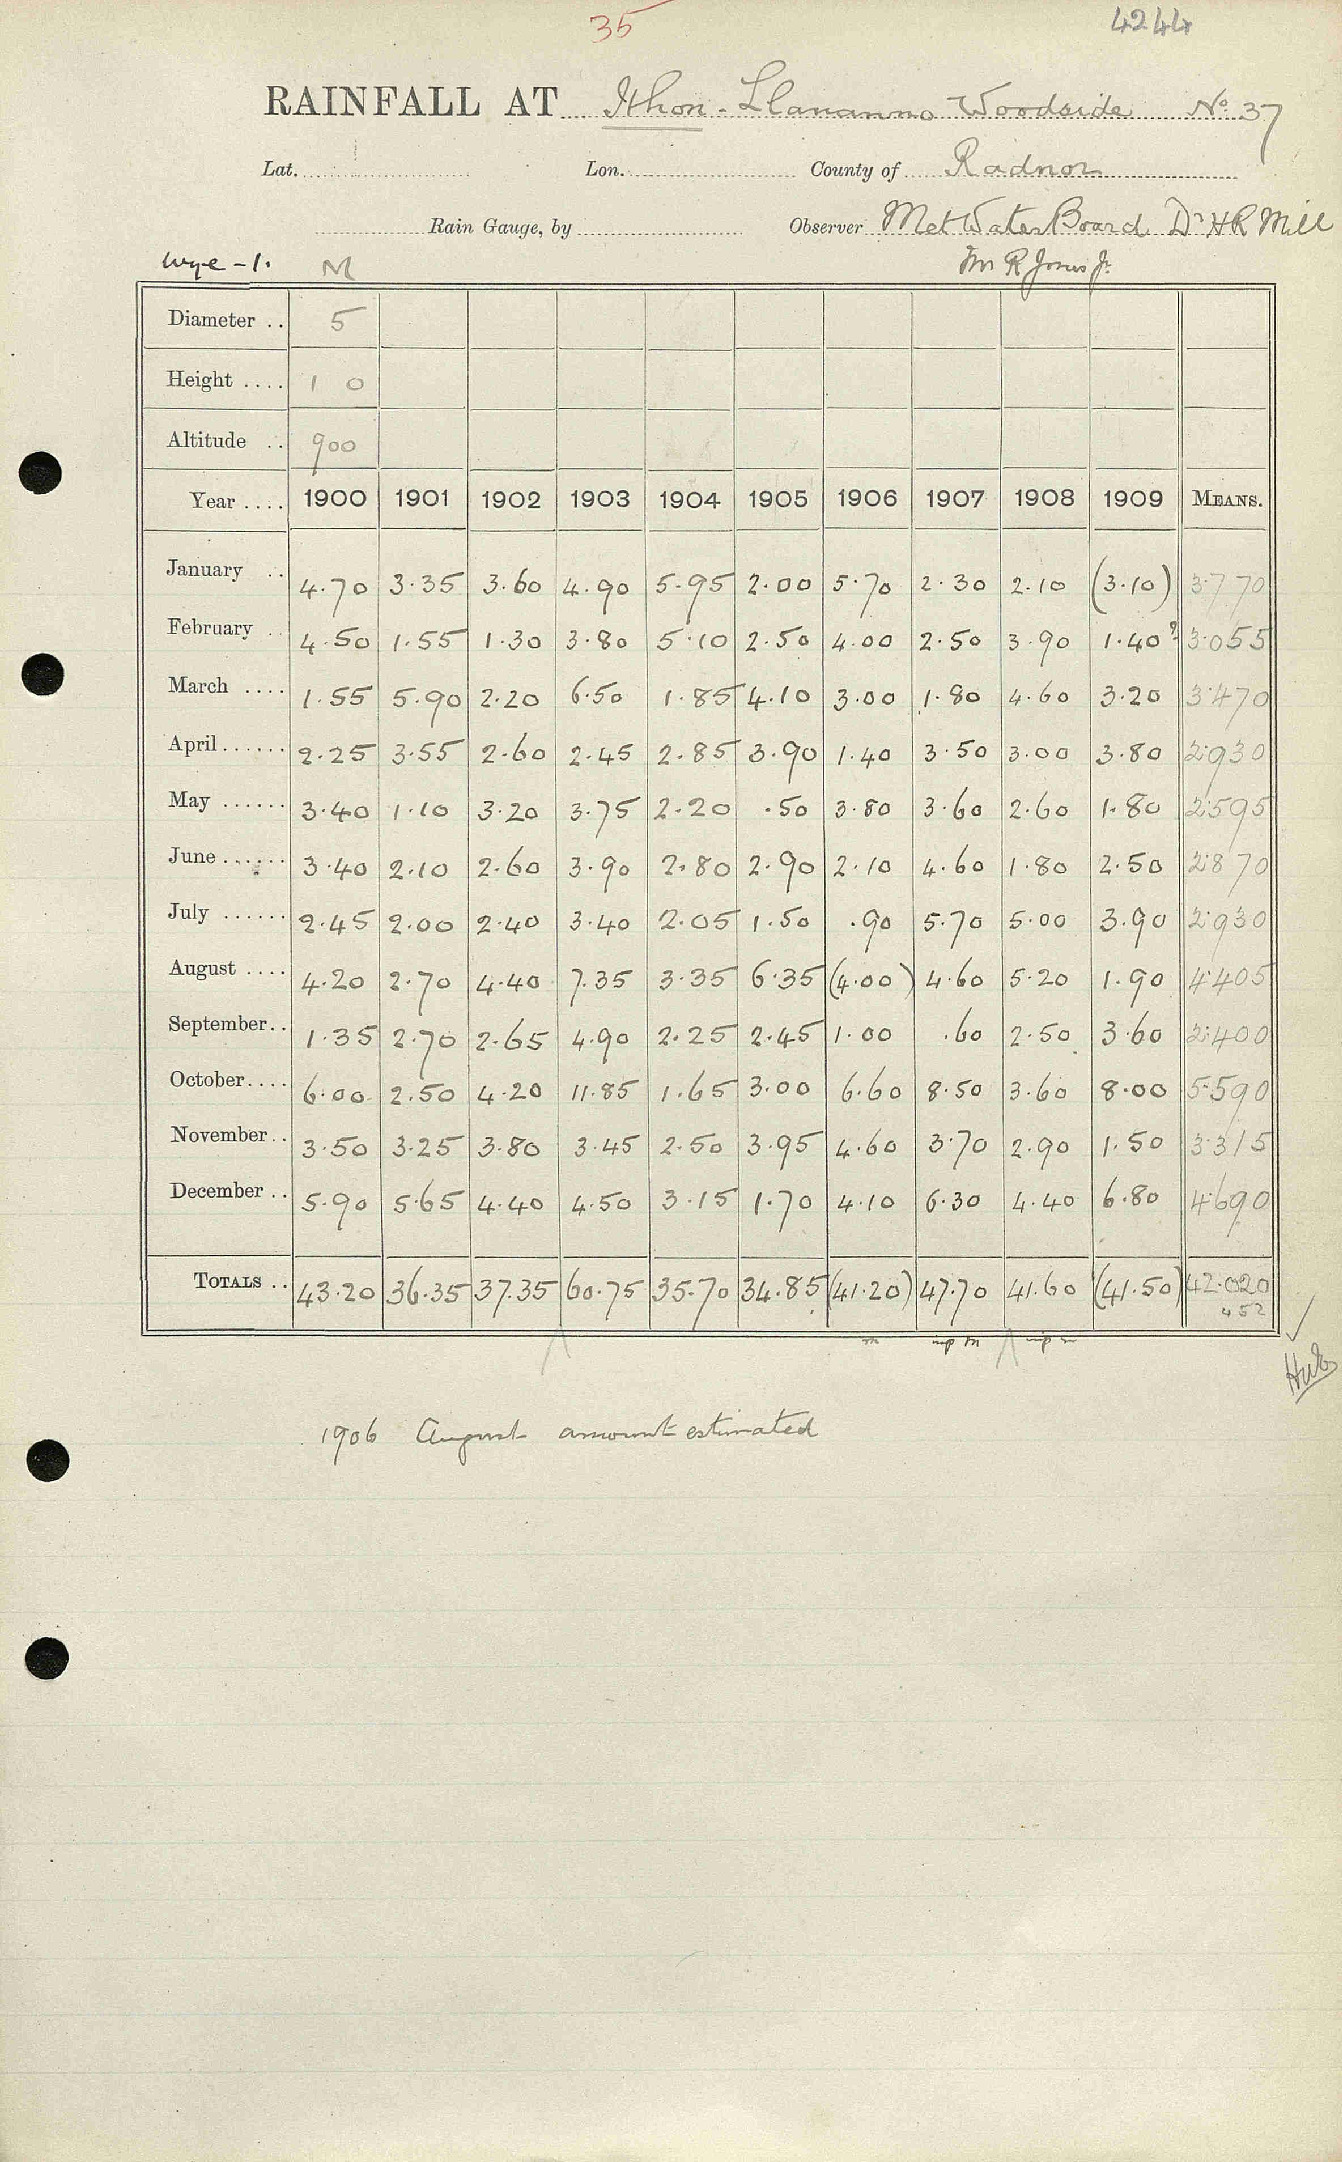 35 4244
RAINFALL AT Ithon - Llananno Woodside No. 37
Lat. Lon. County of Radnor
Rain Gauge, by Observer Met Water Board Dr HR Mill
Wye - 1. M Mr R Jones Jr.
Diameter .. 5
Height .... 1 0
Altitude .. 900
Year .... 1900 1901 1902 1903 1904 1905 1906 1907 1908 1909 MEANS.
January .. 4.70 3.35 3.60 4.90 5.95 2.00 5.70 2.30 2.10 (3.10) 3.770
February .. 4.50 1.55 1.30 3.80 5.10 2.50 4.00 2.50 3.90 1.40? 3.055
March .... 1.55 5.90 2.20 6.50 1.85 4.10 3.00 1.80 4.60 3.20 3.470
April...... 2.25 3.55 2.60 2.45 2.85 3.90 1.40 3.50 3.00 3.80 2.930
May ...... 3.40 1.10 3.20 3.75 2.20 .50 3.80 3.60 2.60 1.80 2.595
June ...... 3.40 2.10 2.60 3.90 2.80 2.90 2.10 4.60 1.80 2.50 2.870
July ...... 2.45 2.00 2.40 3.40 2.05 1.50 .90 5.70 5.00 3.90 2.930
August .... 4.20 2.70 4.40 7.35 3.35 6.35 (4.00) 4.60 5.20 1.90 4.405
September.. 1.35 2.70 2.65 4.90 2.25 2.45 1.00 .60 2.50 3.60 2.400
October.... 6.00 2.50 4.20 11.85 1.65 3.00 6.60 8.50 3.60 8.00 5.590
November.. 3.50 3.25 3.80 3.45 2.50 3.95 4.60 3.70 2.90 1.50 3.315
December .. 5.90 5.65 4.40 4.50 3.15 1.70 4.10 6.30 4.40 6.80 4.690
TOTALS .. 43.20 36.35 37.35 60.75 35.70 34.85 (41.20) 47.70 41.60 (41.50) 42.020
452
1906 August amount estimated